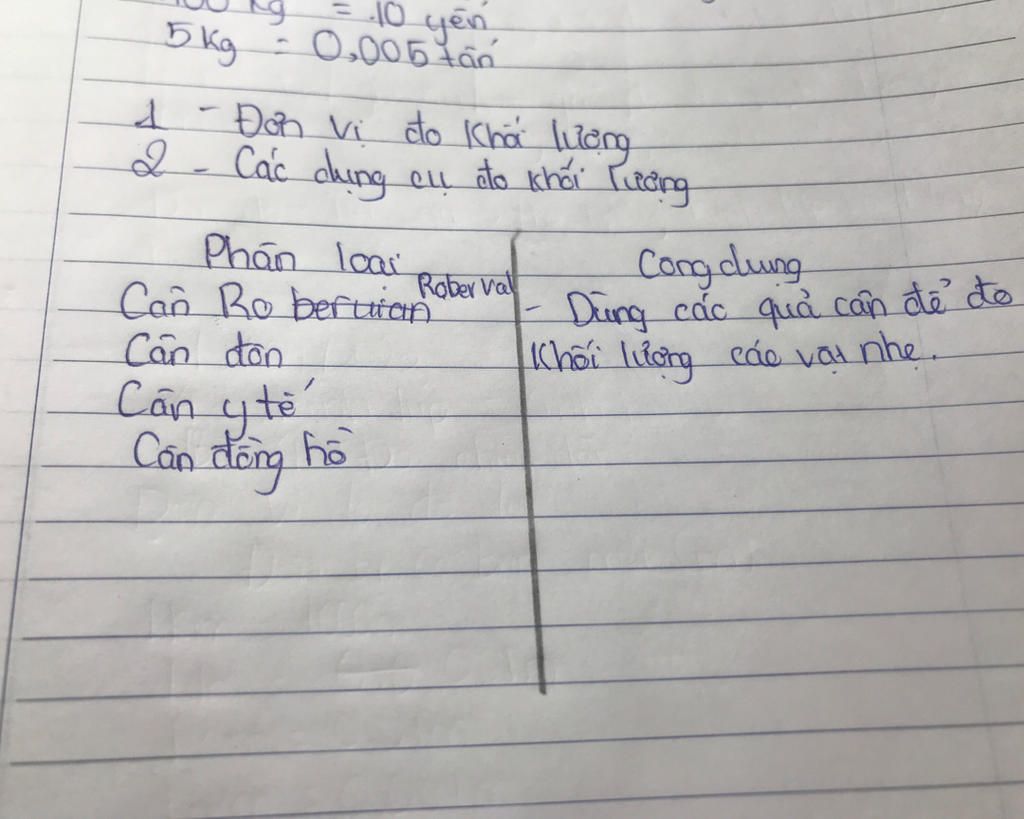 100 kg = 10 yến
5kg = 0,005 tấn
1 - Đơn vị đo khối lượng
2 - Các dụng cụ đo khối lượng
Phân loại
Cân Ro Roberval
Cân đòn
Cân y tế
Cân đồng hồ
Công dụng
- Dùng các quả cân để đo
khối lượng các vật nhẹ.